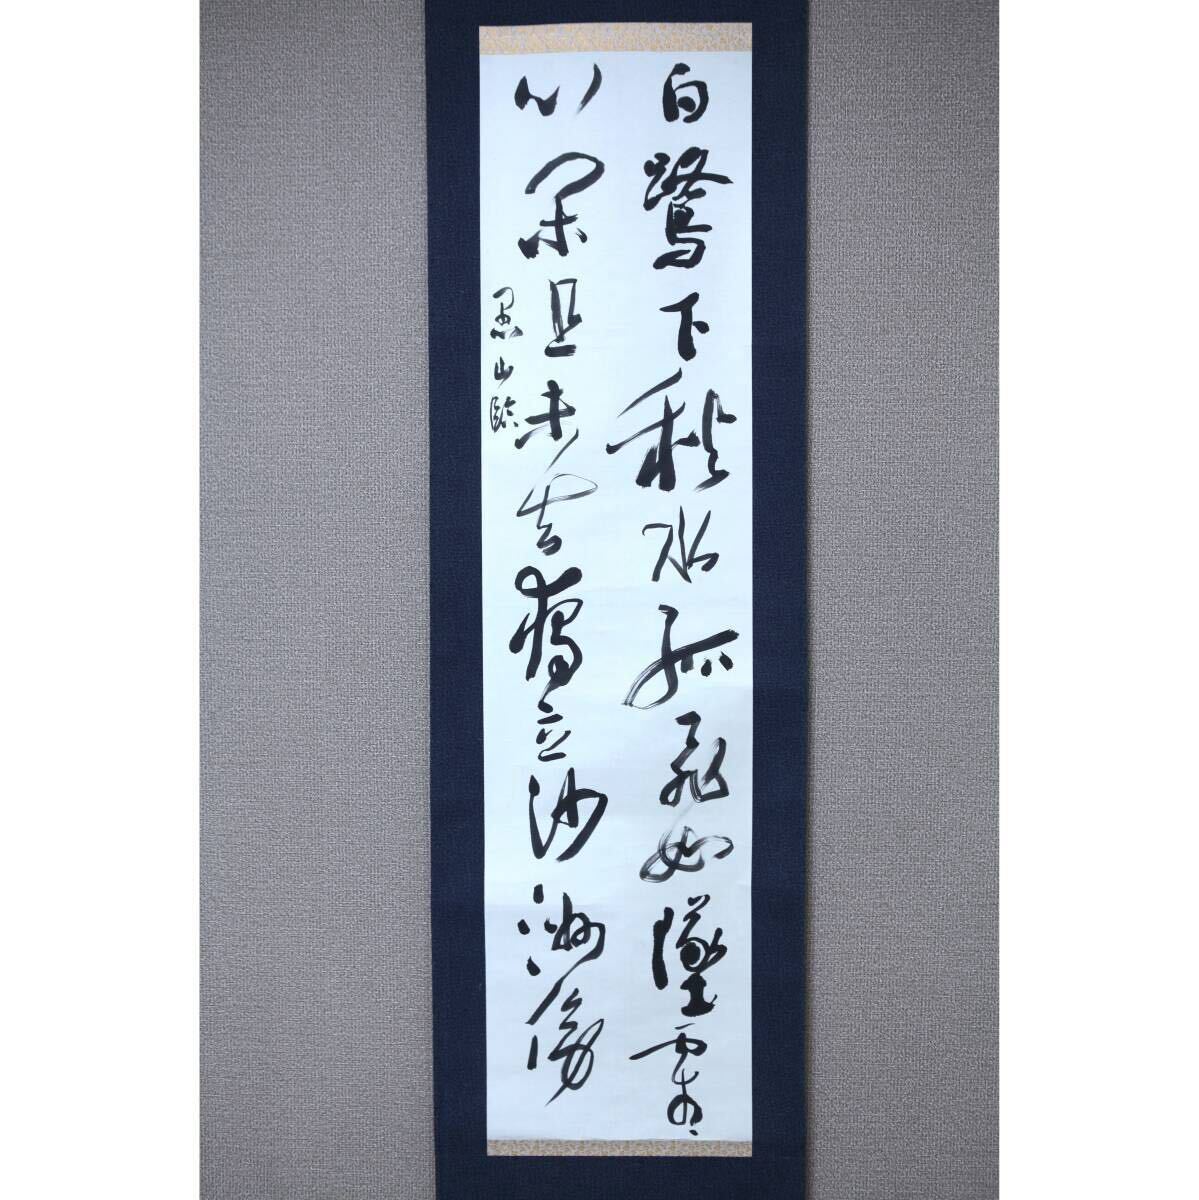 白鷺下秋水孤飛如墜霜
心閑且未去獨立沙洲傍
愚山臨